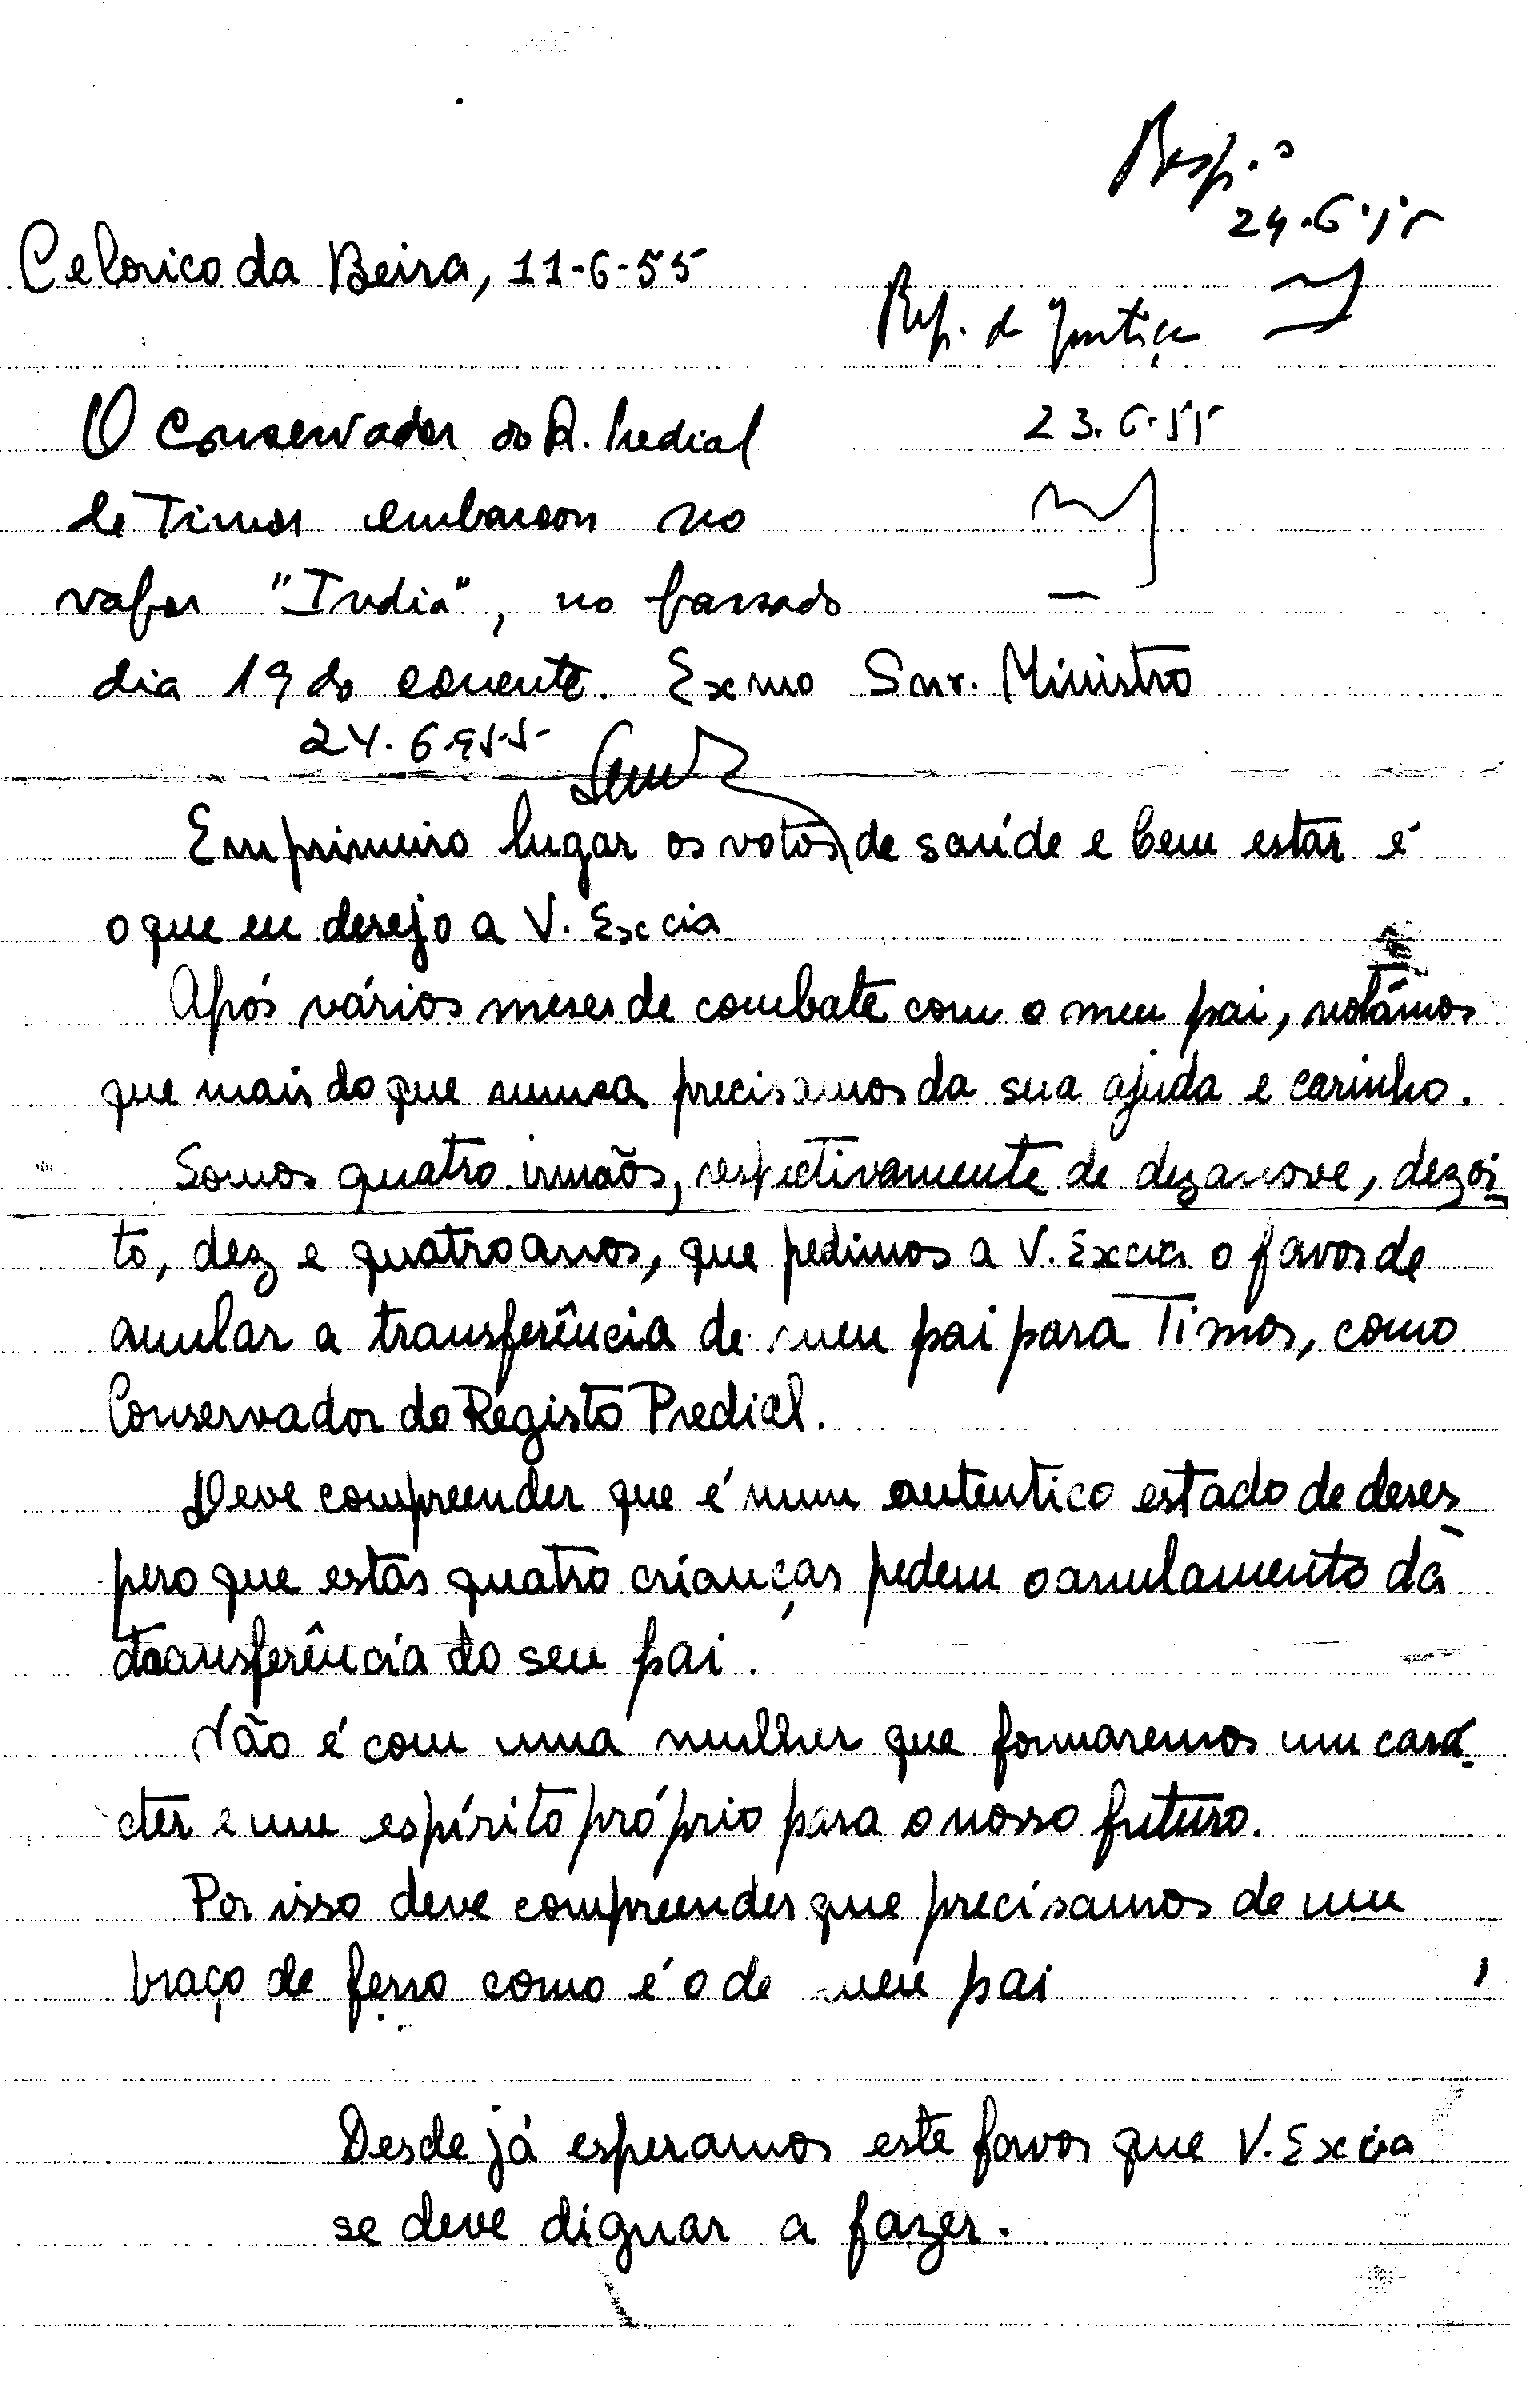 Resp.o
24.6.55
Celorico da Beira, 11-6-55
Rep. de Justiça
23.6.55
O Conservador do R. Predial
de Timor embarcou no
vapor "India", no passado
dia 19 do corrente.
24.6.955
Exmo Snr. Ministro
Em primeiro lugar os votos de saúde e bem estar é
o que eu desejo a V. Excia
Após vários meses de combate com o meu pai, notámos
que mais do que nunca precisamos da sua ajuda e carinho.
Somos quatro irmãos, respectivamente de dezanove, dezoi-
to, dez e quatro anos, que pedimos a V. Excia o favor de
anular a transferência de meu pai para Timor, como
Conservador do Registo Predial.
Deve compreender que é num autentico estado de deses
pero que estas quatro crianças pedem o anulamento da
transferência do seu pai.
Não é com uma mulher que formaremos um cará-
cter e um espírito próprio para o nosso futuro.
Por isso deve compreender que precisamos de um
braço de ferro como é o de meu pai
Desde já esperamos este favor que V. Excia
se deve dignar a fazer.